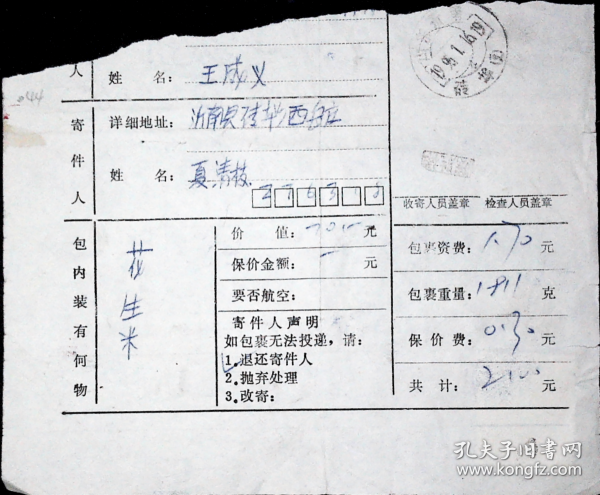 人 姓 名: 王成义
寄件人
详细地址: 沂南县
姓 名: 夏清枝
276310
收寄人员盖章 检查人员盖章
包内装有何物
花生米
价 值: 元
保价金额: 元
要否航空:
寄件人声明
如包裹无法投递,请:
1.退还寄件人
2.抛弃处理
3.改寄:
包裹资费: 1.70 元
包裹重量: 1811 克
保 价 费: 0.30 元
共 计: 2.00 元
孔夫子旧书网
www.kongfz.com